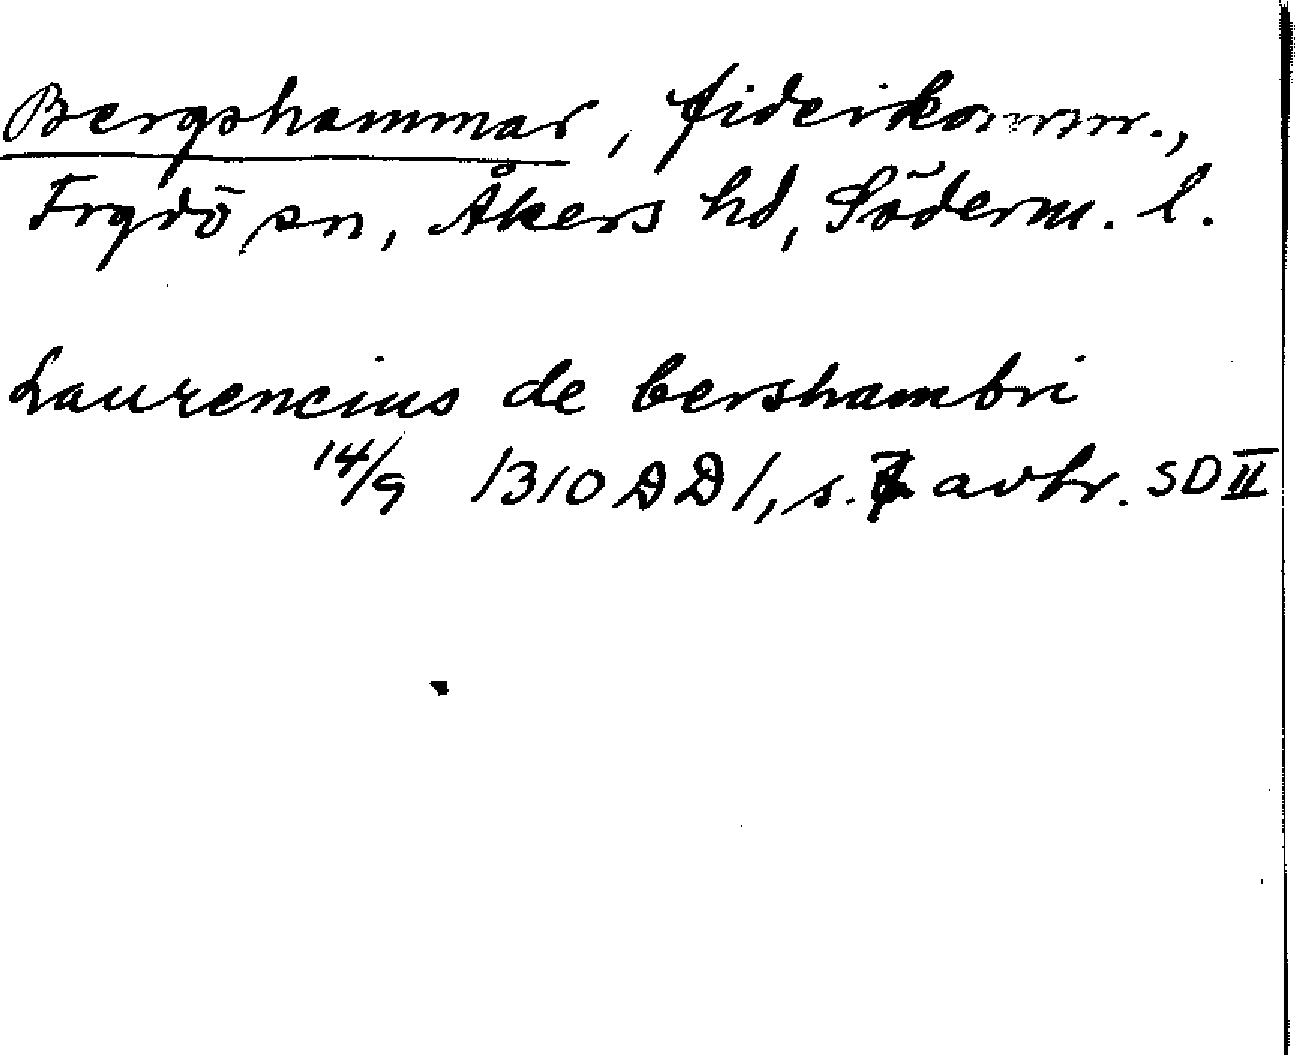 Bergshammar, fideikomm.,
Frgdö sn, Åkers hd, Söderm. l.
Laurencius de bershambri
14/9 1310 DD1, s. 7 avtr. SD II